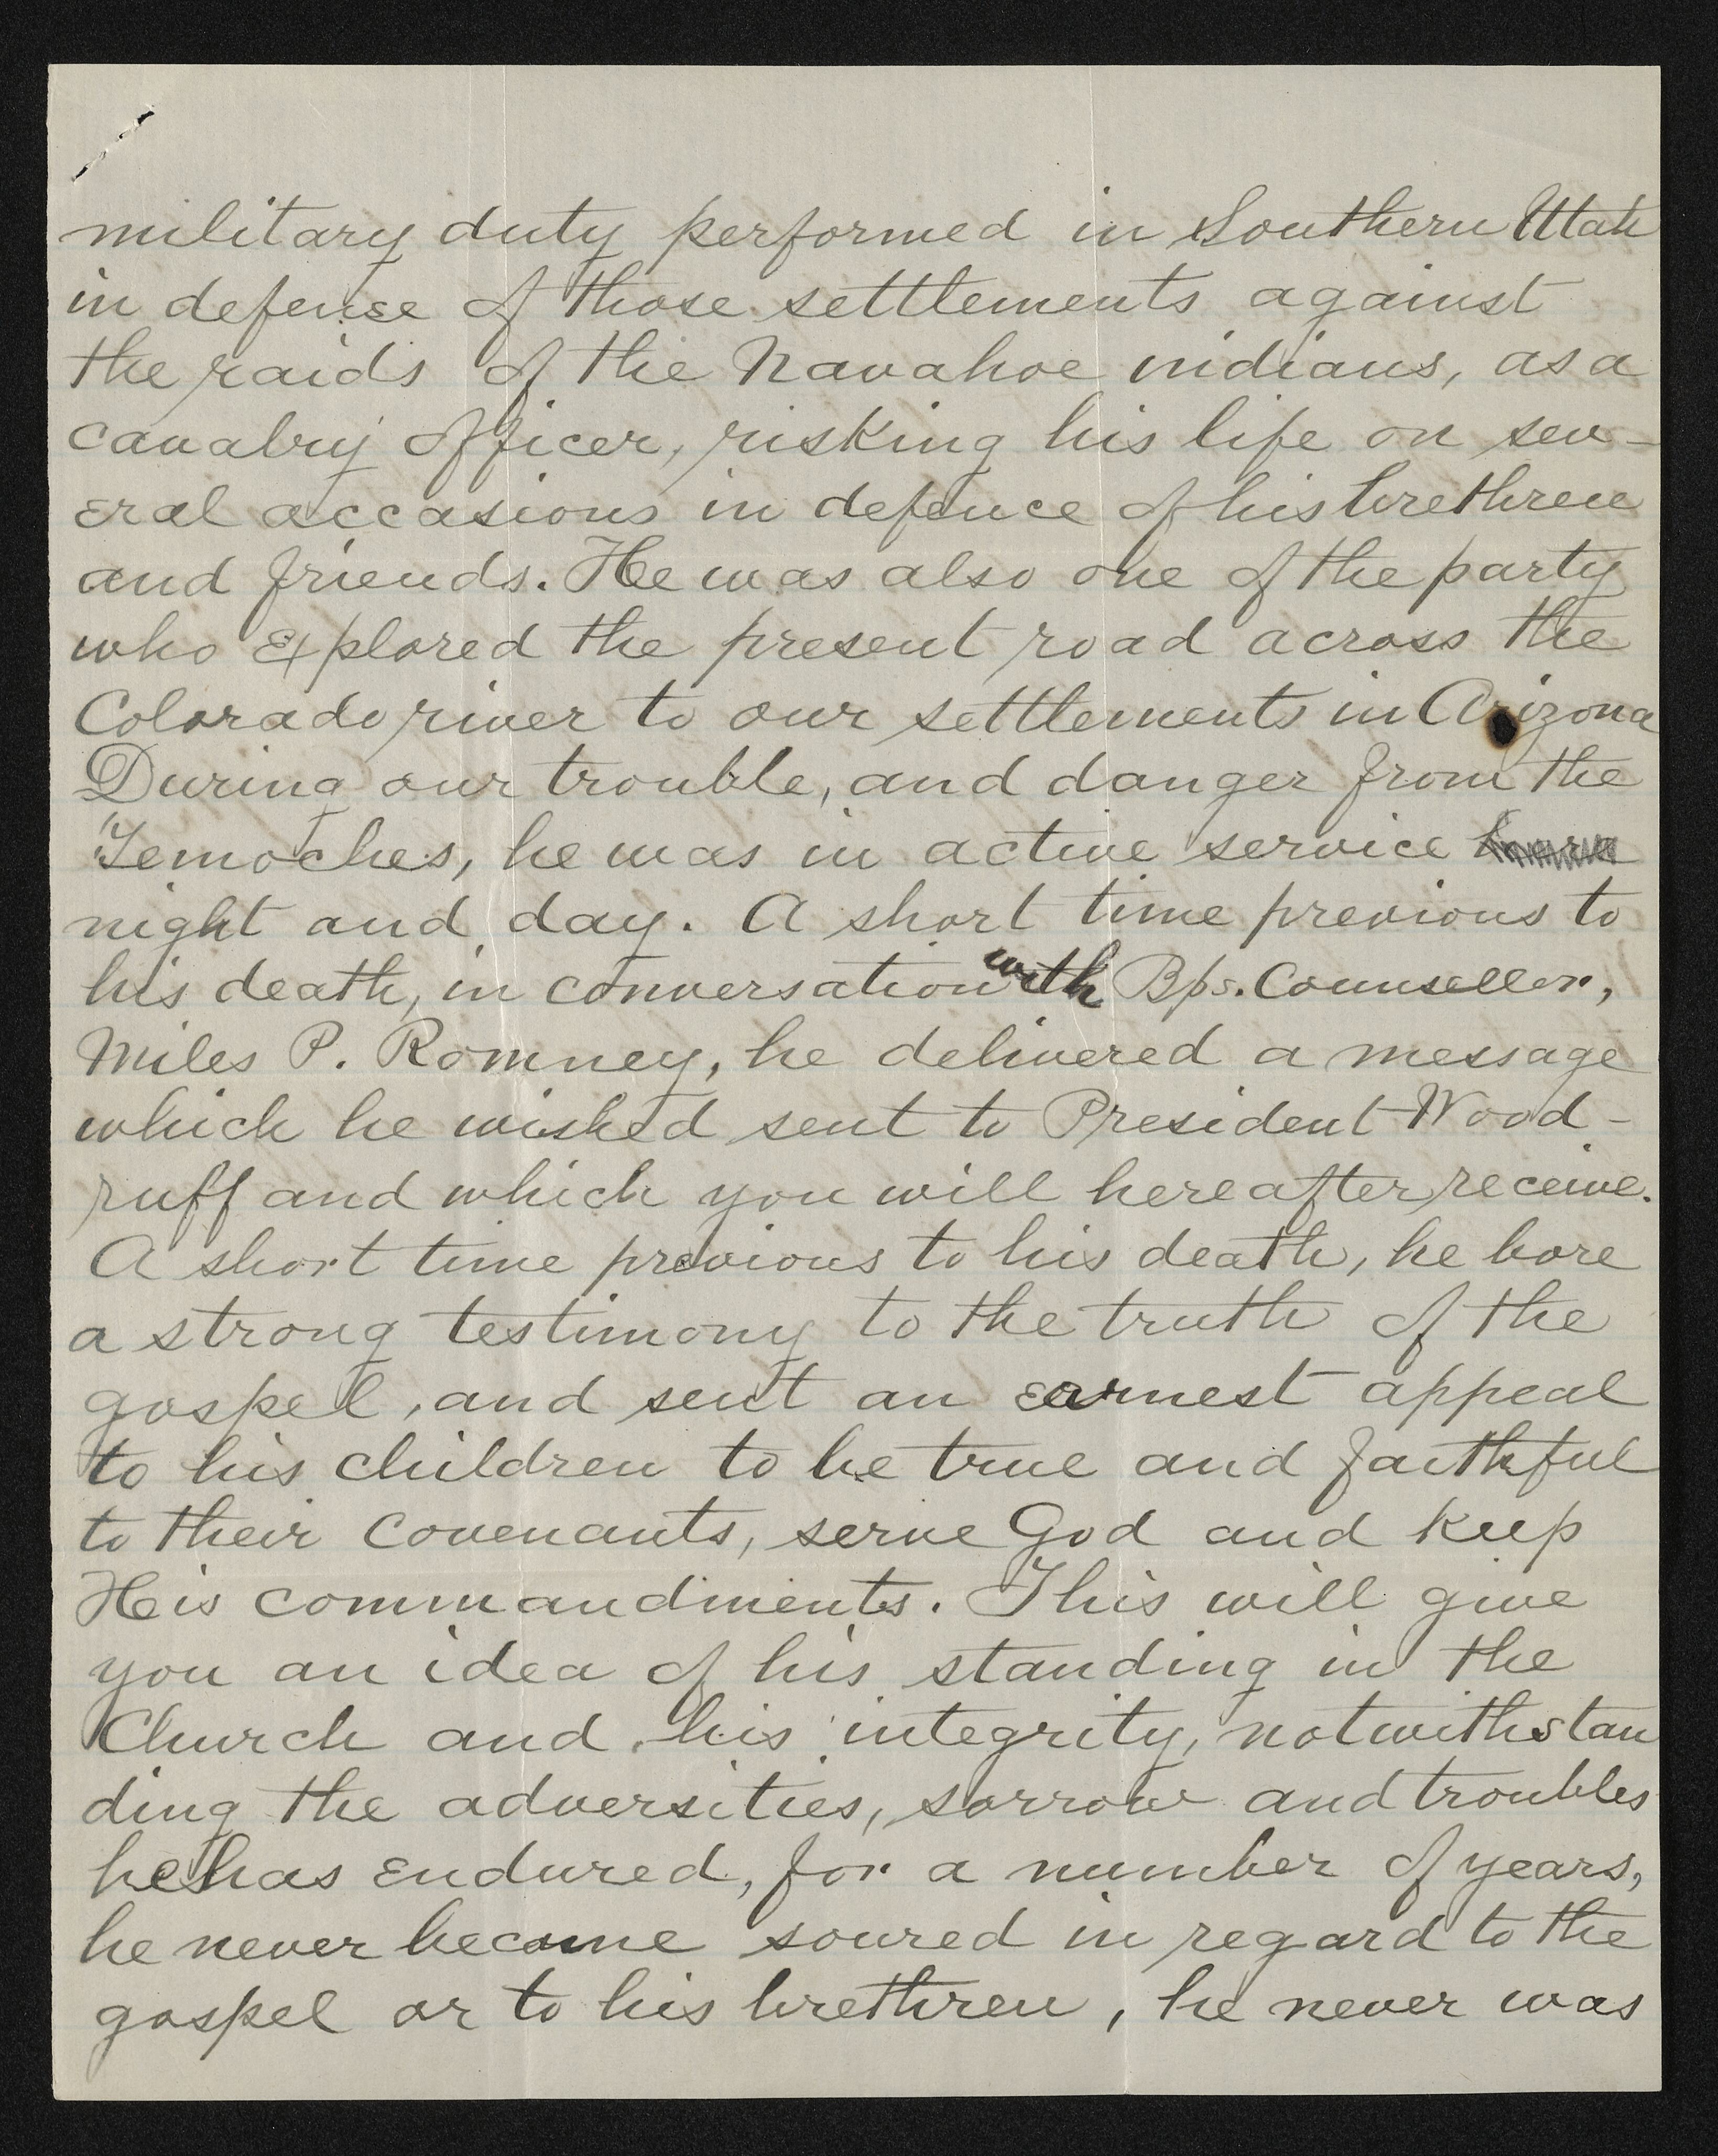 military duty performed in Southern Utah
in defense of those settlements against
the raids of the Navahoe indians, as a
cavalry officer, risking his life on sev-
eral accasions in defence of his brethren
and friends. He was also one of the party
who explored the present road across the
Colorado river to our settlements in Arizona
During our trouble, and danger from the
Temoches, he was in active service
night and day. A short time previous to
his death, in conversation with Bps. Counsellor,
Miles P. Romney, he delivered a message
which he wished sent to President Wood-
ruff and which you will hereafter receive.
A short time previous to his death, he bore
a strong testimony to the truth of the
gospel, and sent an earnest appeal
to his children to be true and faithful
to their covenants, serve God and keep
His commandments. This will give
you an idea of his standing in the
Church and his integrity, notwithstan
ding the adversities, sorrow and troubles
he has endured, for a number of years,
he never become soured in regard to the
gospel or to his brethren, he never was